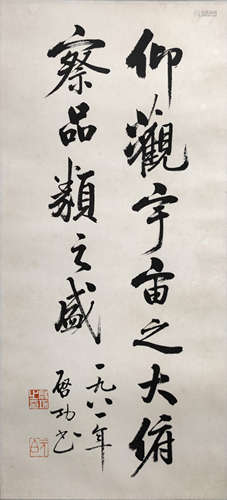 仰觀宇宙之大俯
察品類之盛
一九八一年
啓功書